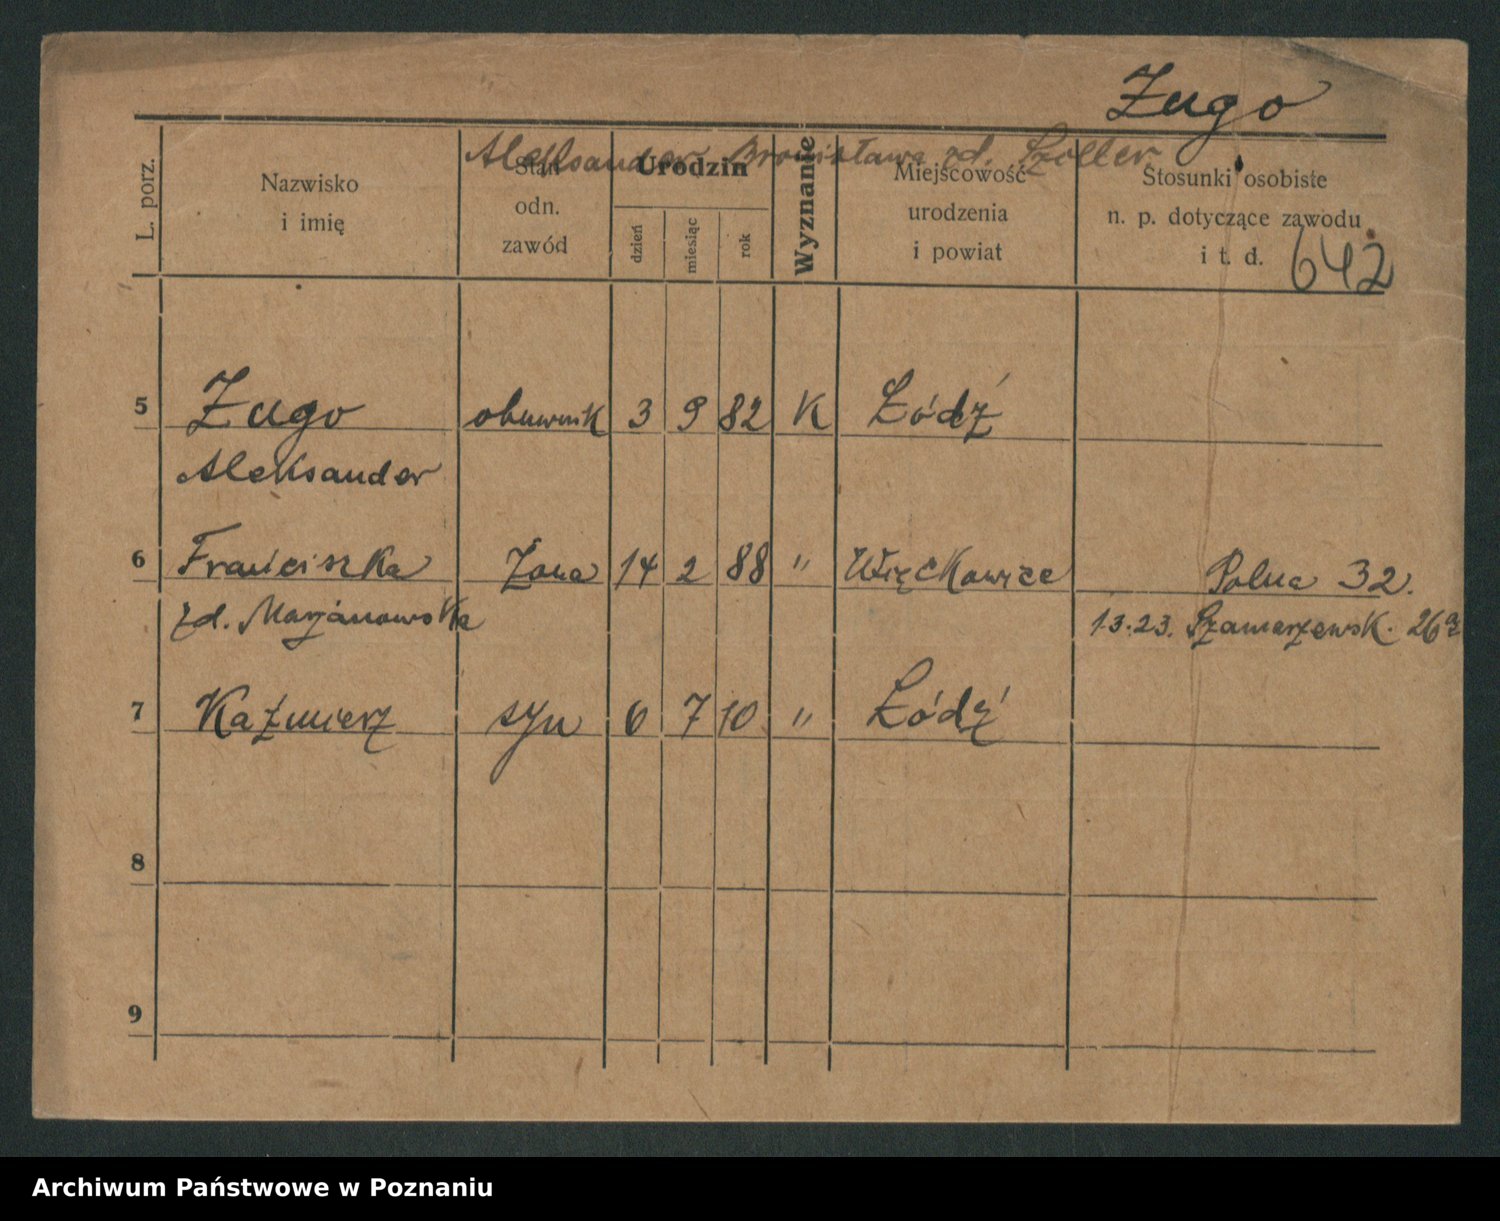 Zugo
Aleksander Bronisława zd. Szoller
L. porz.
Nazwisko
i imię
Stan
odn.
zawód
Urodzin
dzień
miesiąc
rok
Wyznanie
Miejscowość
urodzenia
i powiat
Stosunki osobiste
n. p. dotyczące zawodu
i t. d.
642
5 Zugo obuwnik 3 9 82 K Łódź
Aleksander
6 Franciszka żona 14 2 88 " Więckowice Polna 32.
zd. Marjanowska 1.3.23. Szamarzewsk. 26a
7 Kaźmierz syn 6 7 10 " Łódź
8
9
Archiwum Państwowe w Poznaniu